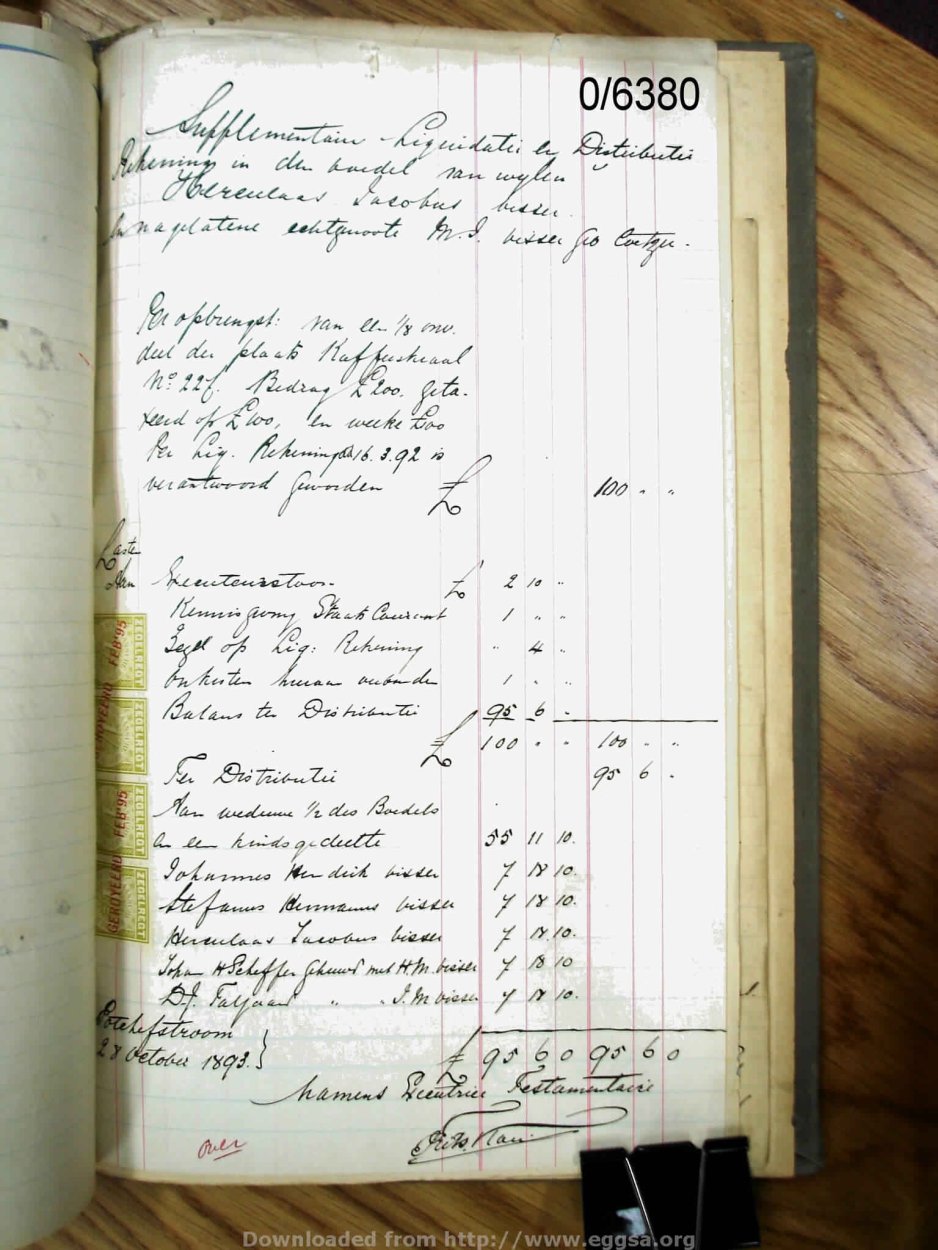 0/6380
Supplementaire Liquidatie en Distributie
Rekening in den boedel van wylen
Herculaas Jacobus visser
en nagelatene echtgenoote M. J. visser geb Coetzee.
Per opbrengst: van een 1/8 onv.
deel der plaats Kafferskraal
No 227. Bedrag £200. geta-
xeerd op £100, en welke £100
Per Liq. Rekening dd 16.3.92 is
verantwoord geworden £ 100 " "
Lasten
Aan Executeursloon £ 2 10 "
Kennisgeving Staats Courant 1 " "
Zegel op Liq: Rekening " 4 "
Onkosten hieraan verbonden 1 " "
Balans ter Distributie 95 6 "
£ 100 " " 100 " "
Per Distributie 95 6 "
Aan weduwe 1/2 des Boedels
en een kindsgedeelte 55 11 10.
Johannes Hendrik visser 7 18 10.
Stefanus Hermanus visser 7 18 10.
Herculaas Jacobus visser 7 18 10.
Johan H Scheffer gehuwd met H. M. visser 7 18 10
D. J. Taljaard " " J. M visser 7 18 10.
Potchefstroom
28 October 1893.
£ 95 6 0 95 6 0
Namens Executrice Testamentaire
Over
ZEGELREGT
GEROYEERD FEB'95
ZEGELREGT
ZEGELREGT
GEROYEERD FEB'95
ZEGELREGT
Downloaded from http://www.eggsa.org